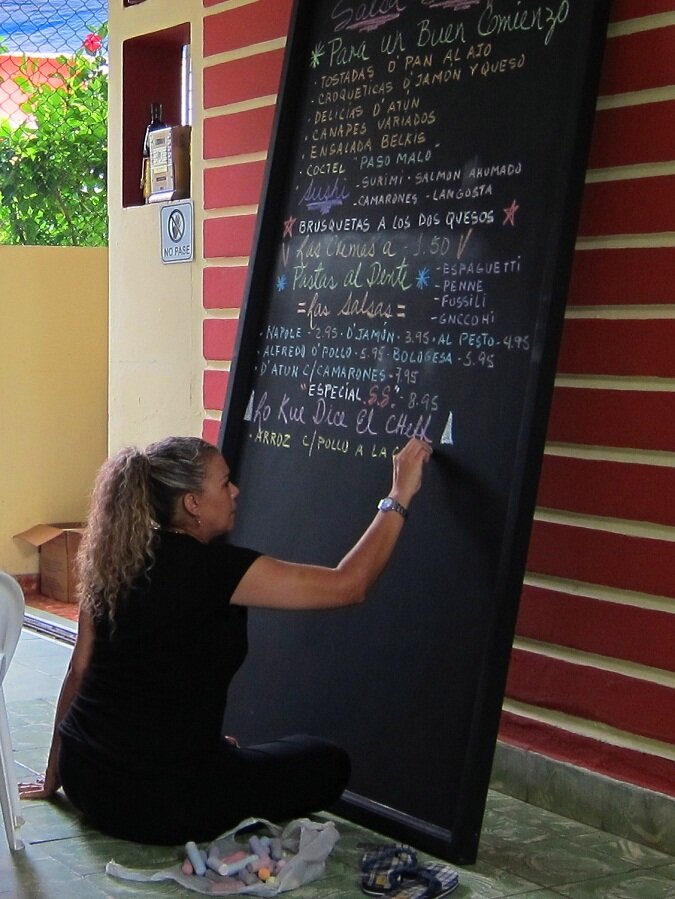 Para un Buen Comienzo
· TOSTADAS D'PAN AL AJO
· CROQUETICAS D'JAMÓN Y QUESO
· DELICIAS D'ATUN
· CANAPES VARIADOS
· ENSALADA BELKIS
· COCTEL "PASO MALO"
Sushi - SURIMI · SALMON AHUMADO
- CAMARONES - LANGOSTA
BRUSQUETAS A LOS DOS QUESOS
Las Cremas a 1.50
Pastas al Dente - ESPAGUETTI
- PENNE
- FUSSILI
- GNCCOHI
= Las Salsas =
· NAPOLE - 2.95 · D'JAMÓN · 3.95 · AL PESTO - 4.95
· ALFREDO D'POLLO - 5.95 · BOLOGESA - 5.95
· D'ATUN C/CAMARONES - 7.95
"ESPECIAL S.S." - 8.95
Lo Kue Dice El Cheff
· ARROZ C/POLLO A LA
NO PASE